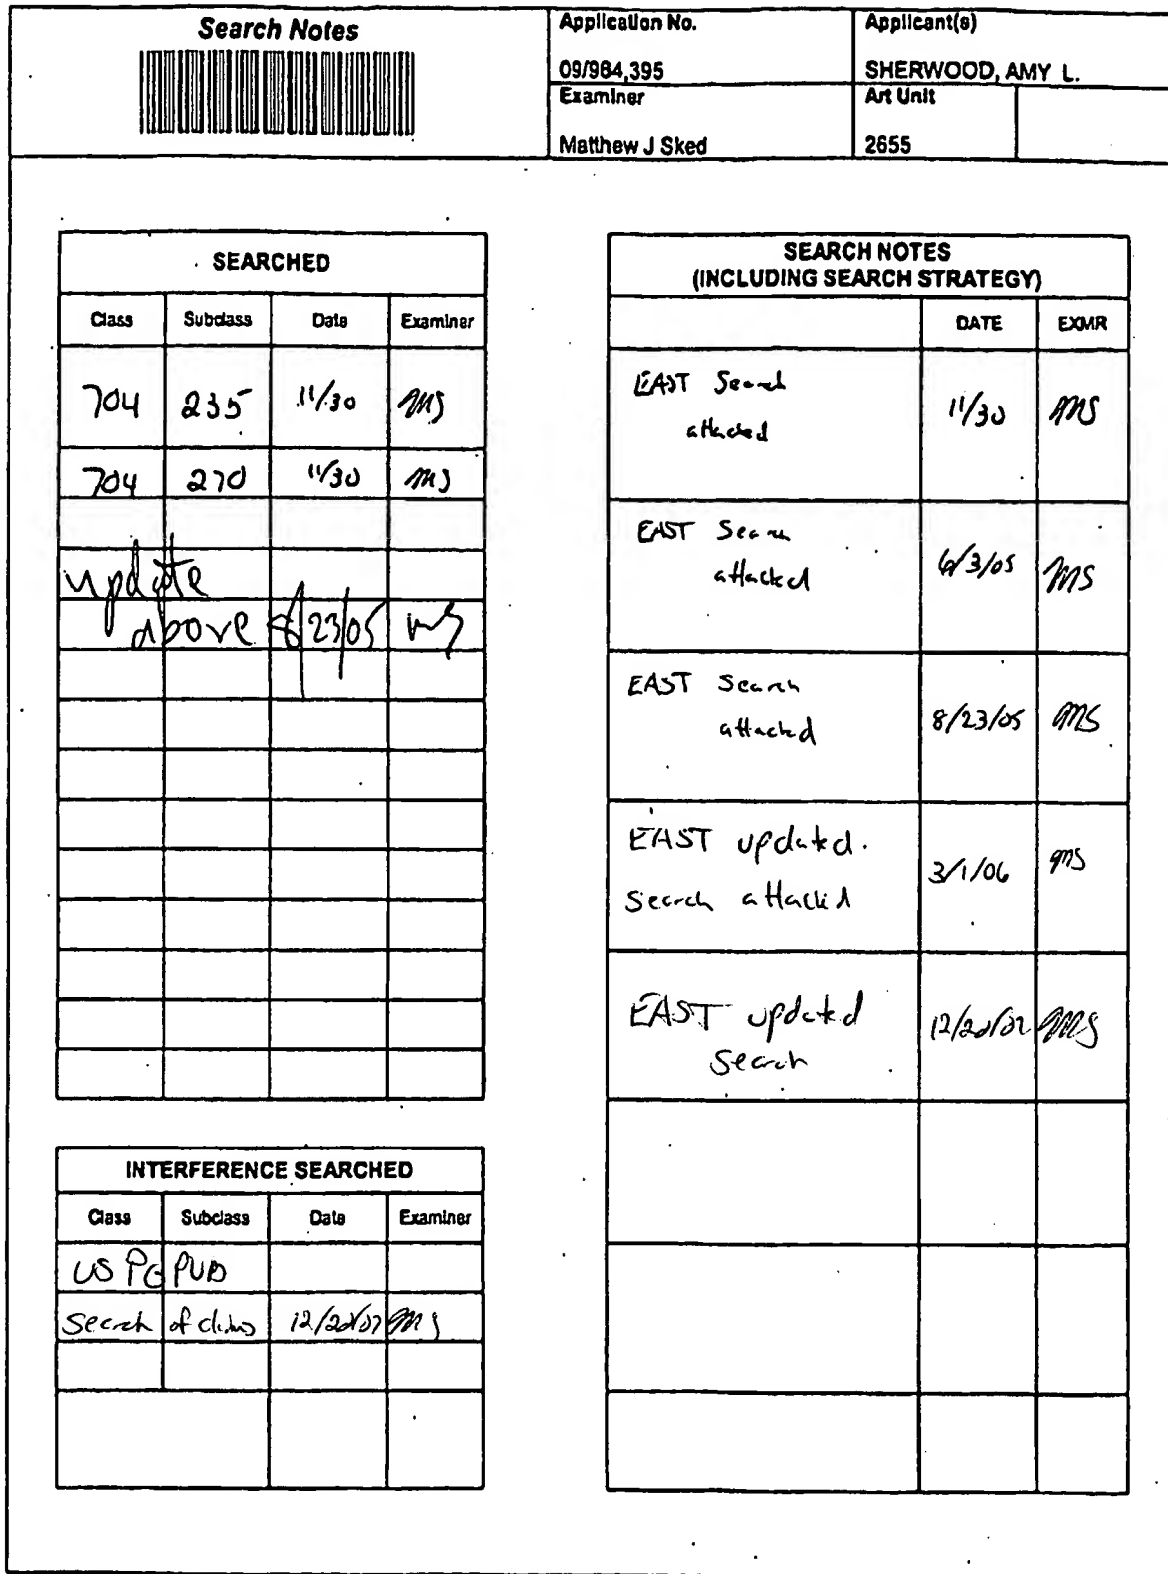 Search Notes
Application No.
09/984,395
Applicant(s)
SHERWOOD, AMY L.
Examiner
Matthew J Sked
Art Unit
2655
SEARCHED
Class Subclass Date Examiner
704 235 11/30 MS
704 270 11/30 MS
update
above 8/23/05 MS
INTERFERENCE SEARCHED
Class Subclass Date Examiner
US PG PUB
search of claims 12/20/07 MS
SEARCH NOTES
(INCLUDING SEARCH STRATEGY)
DATE EXMR
EAST Search
attached
11/30 MS
EAST Search
attached
6/3/05 MS
EAST Search
attached
8/23/05 MS
EAST updated
search attached
3/1/06 MS
EAST updated
search
12/20/07 MS